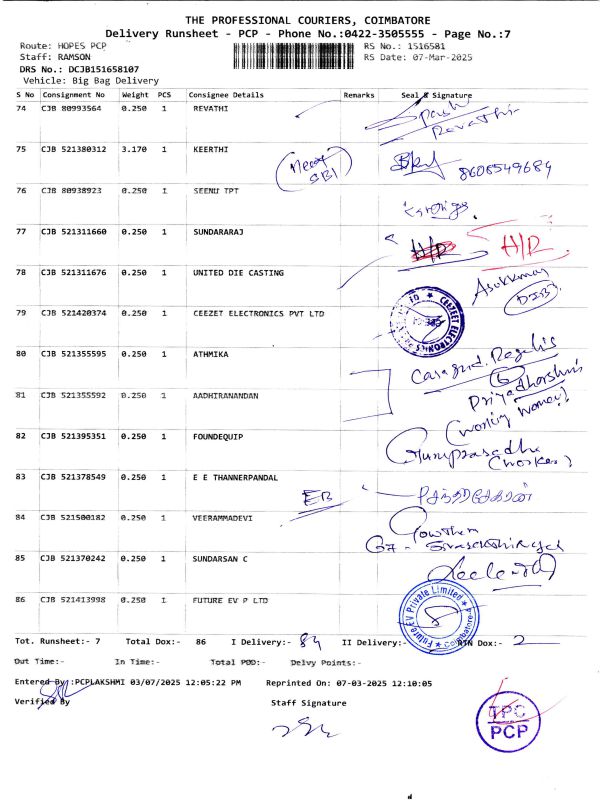 THE PROFESSIONAL COURIERS, COIMBATORE
Delivery Runsheet - PCP - Phone No.:0422-3505555 - Page No.:7
Route: HOPES PCP RS No.: 1516581
Staff: RAMSON RS Date: 07-Mar-2025
DRS No.: DCJB151658107
Vehicle: Big Bag Delivery
S No Consignment No Weight PCS Consignee Details Remarks Seal & Signature
74 CJB 80993564 0.250 1 REVATHI
Revathi
75 CJB 521380312 3.170 1 KEERTHI
Near SBI 8608549689
76 CJB 80938923 0.250 1 SEENU TPT
77 CJB 521311660 0.250 1 SUNDARARAJ
H/R H/R
78 CJB 521311676 0.250 1 UNITED DIE CASTING
Asokkumar
79 CJB 521420374 1 CEEZET ELECTRONICS PVT LTD
CEEZET ELECTRONICS
80 CJB 521355595 0.250 1 ATHMIKA
Casagrand
81 CJB 521355592 0.250 1 AADHIRANANDAN
Priyadharshini
(working women)
82 CJB 521395351 0.250 1 FOUNDEQUIP
Guruprasadh
(worker)
83 CJB 521378549 0.250 1 E E THANNERPANDAL
EB
84 CJB 521500182 0.250 1 VEERAMMADEVI
Gowtham
85 CJB 521370242 0.250 1 SUNDARSAN C
86 CJB 521413998 0.250 1 FUTURE EV P LTD
Future EV Private Limited
Coimbatore
Tot. Runsheet:- 7 Total Dox:- 86 I Delivery:- 84 II Delivery:- RTN Dox:- 2
Out Time:- In Time:- Total POD:- Delvy Points:-
Entered By :PCPLAKSHMI 03/07/2025 12:05:22 PM Reprinted On: 07-03-2025 12:10:05
Verified By Staff Signature
TPC
PCP